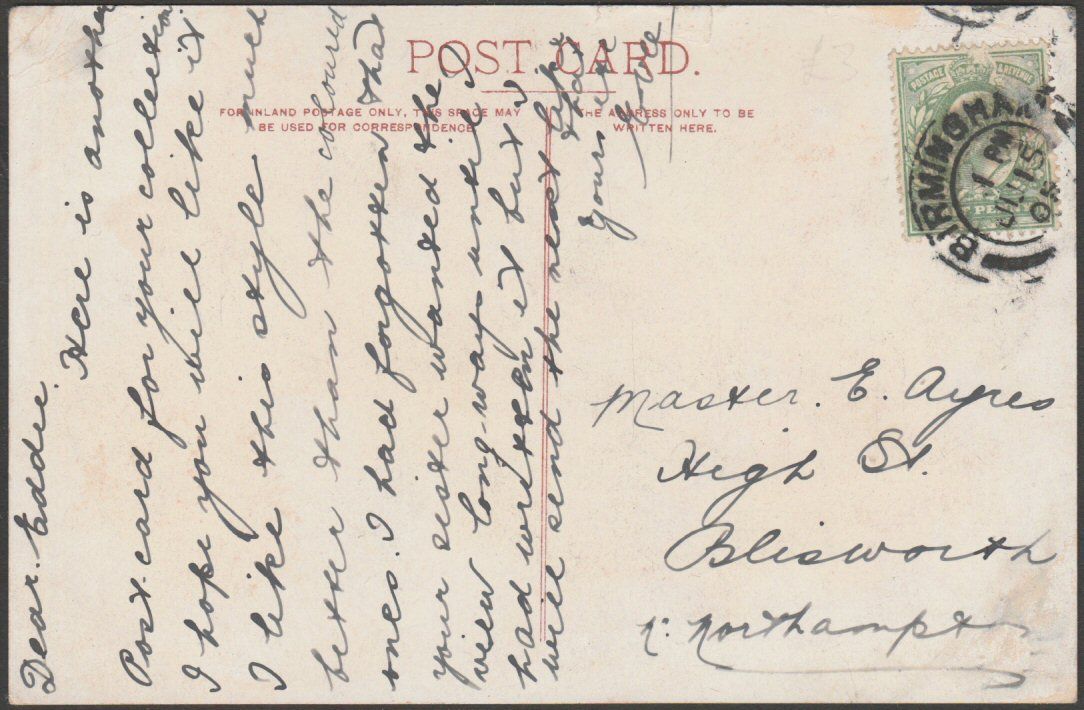 POST CARD.
FOR INLAND POSTAGE ONLY, THIS SPACE MAY
BE USED FOR CORRESPONDENCE
THE ADDRESS ONLY TO BE
WRITTEN HERE.
£3
POSTAGE & REVENUE
BIRMINGHAM
1 PM
JU 15
Dear. Eddie.
Here is another
Post-card for your collection
I hope you will like it
I like this style much
better than the coloured
ones. I had forgotten that
your sister wanted the
view long-ways until I
had written it but I
will send the next like
that
Yours etc
Master. E. Ayres
High St.
Blisworth
Nr. Northampton